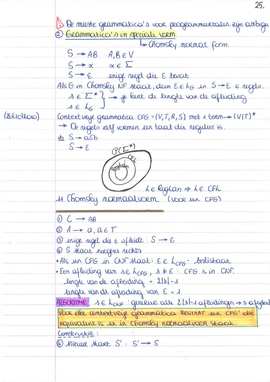 25.
① De meeste grammatica's voor programmeertalen zijn ambigu
② Grammatica's in speciale vorm
→ Chomsky normal form
S → AB A,B ∈ V
S → α α ∈ Σ
S → E enige regel die E bevat
Als G in Chomsky NF staat, dan E ∈ L_G ⇔ S → E in regels.
s ∈ Σ* je kunt de lengte van de afleiding
s ∈ L_G
Contextvrije grammatica CFG = (V,T,R,S) met 1 term → (V|T)*
→ De regels zelf vormen een taal die regulier is.
S → aSb
S → E
P(Σ*)
L ∈ RegLan ⇒ L ∈ CFL
Chomsky normaalvorm (voor een CFG)
① C → AB
② A → a, a ∈ T
③ enige regel die E afleidt S → E
④ S staat nergens rechts
• Als een CFG in NF staat: E ∈ L_CFG - beslisbaar
• Een afleiding van s ∈ L_CFG, s ≠ E : CFG is in CNF.
lengte van de afleiding = 2|s|-1
lengte van de afleiding van E = 1
ALGORITME s ∈ L_CNF : genereer alle 2|s|-1 afleidingen →
Voor elke contextvrije grammatica BESTAAT een CFG' die
equivalent is en in Chomsky normaalvorm staat.
Constructie:
① Nieuwe start S' : S' → S